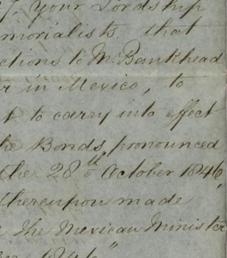 of your Lordship
morialists, that
ctions to Mr. Bankhead
r in Mexico, to
t to carry into effect
he Bonds, pronounced
the 28th October 1846,
thereupon made
the Mexican Minister
1846"